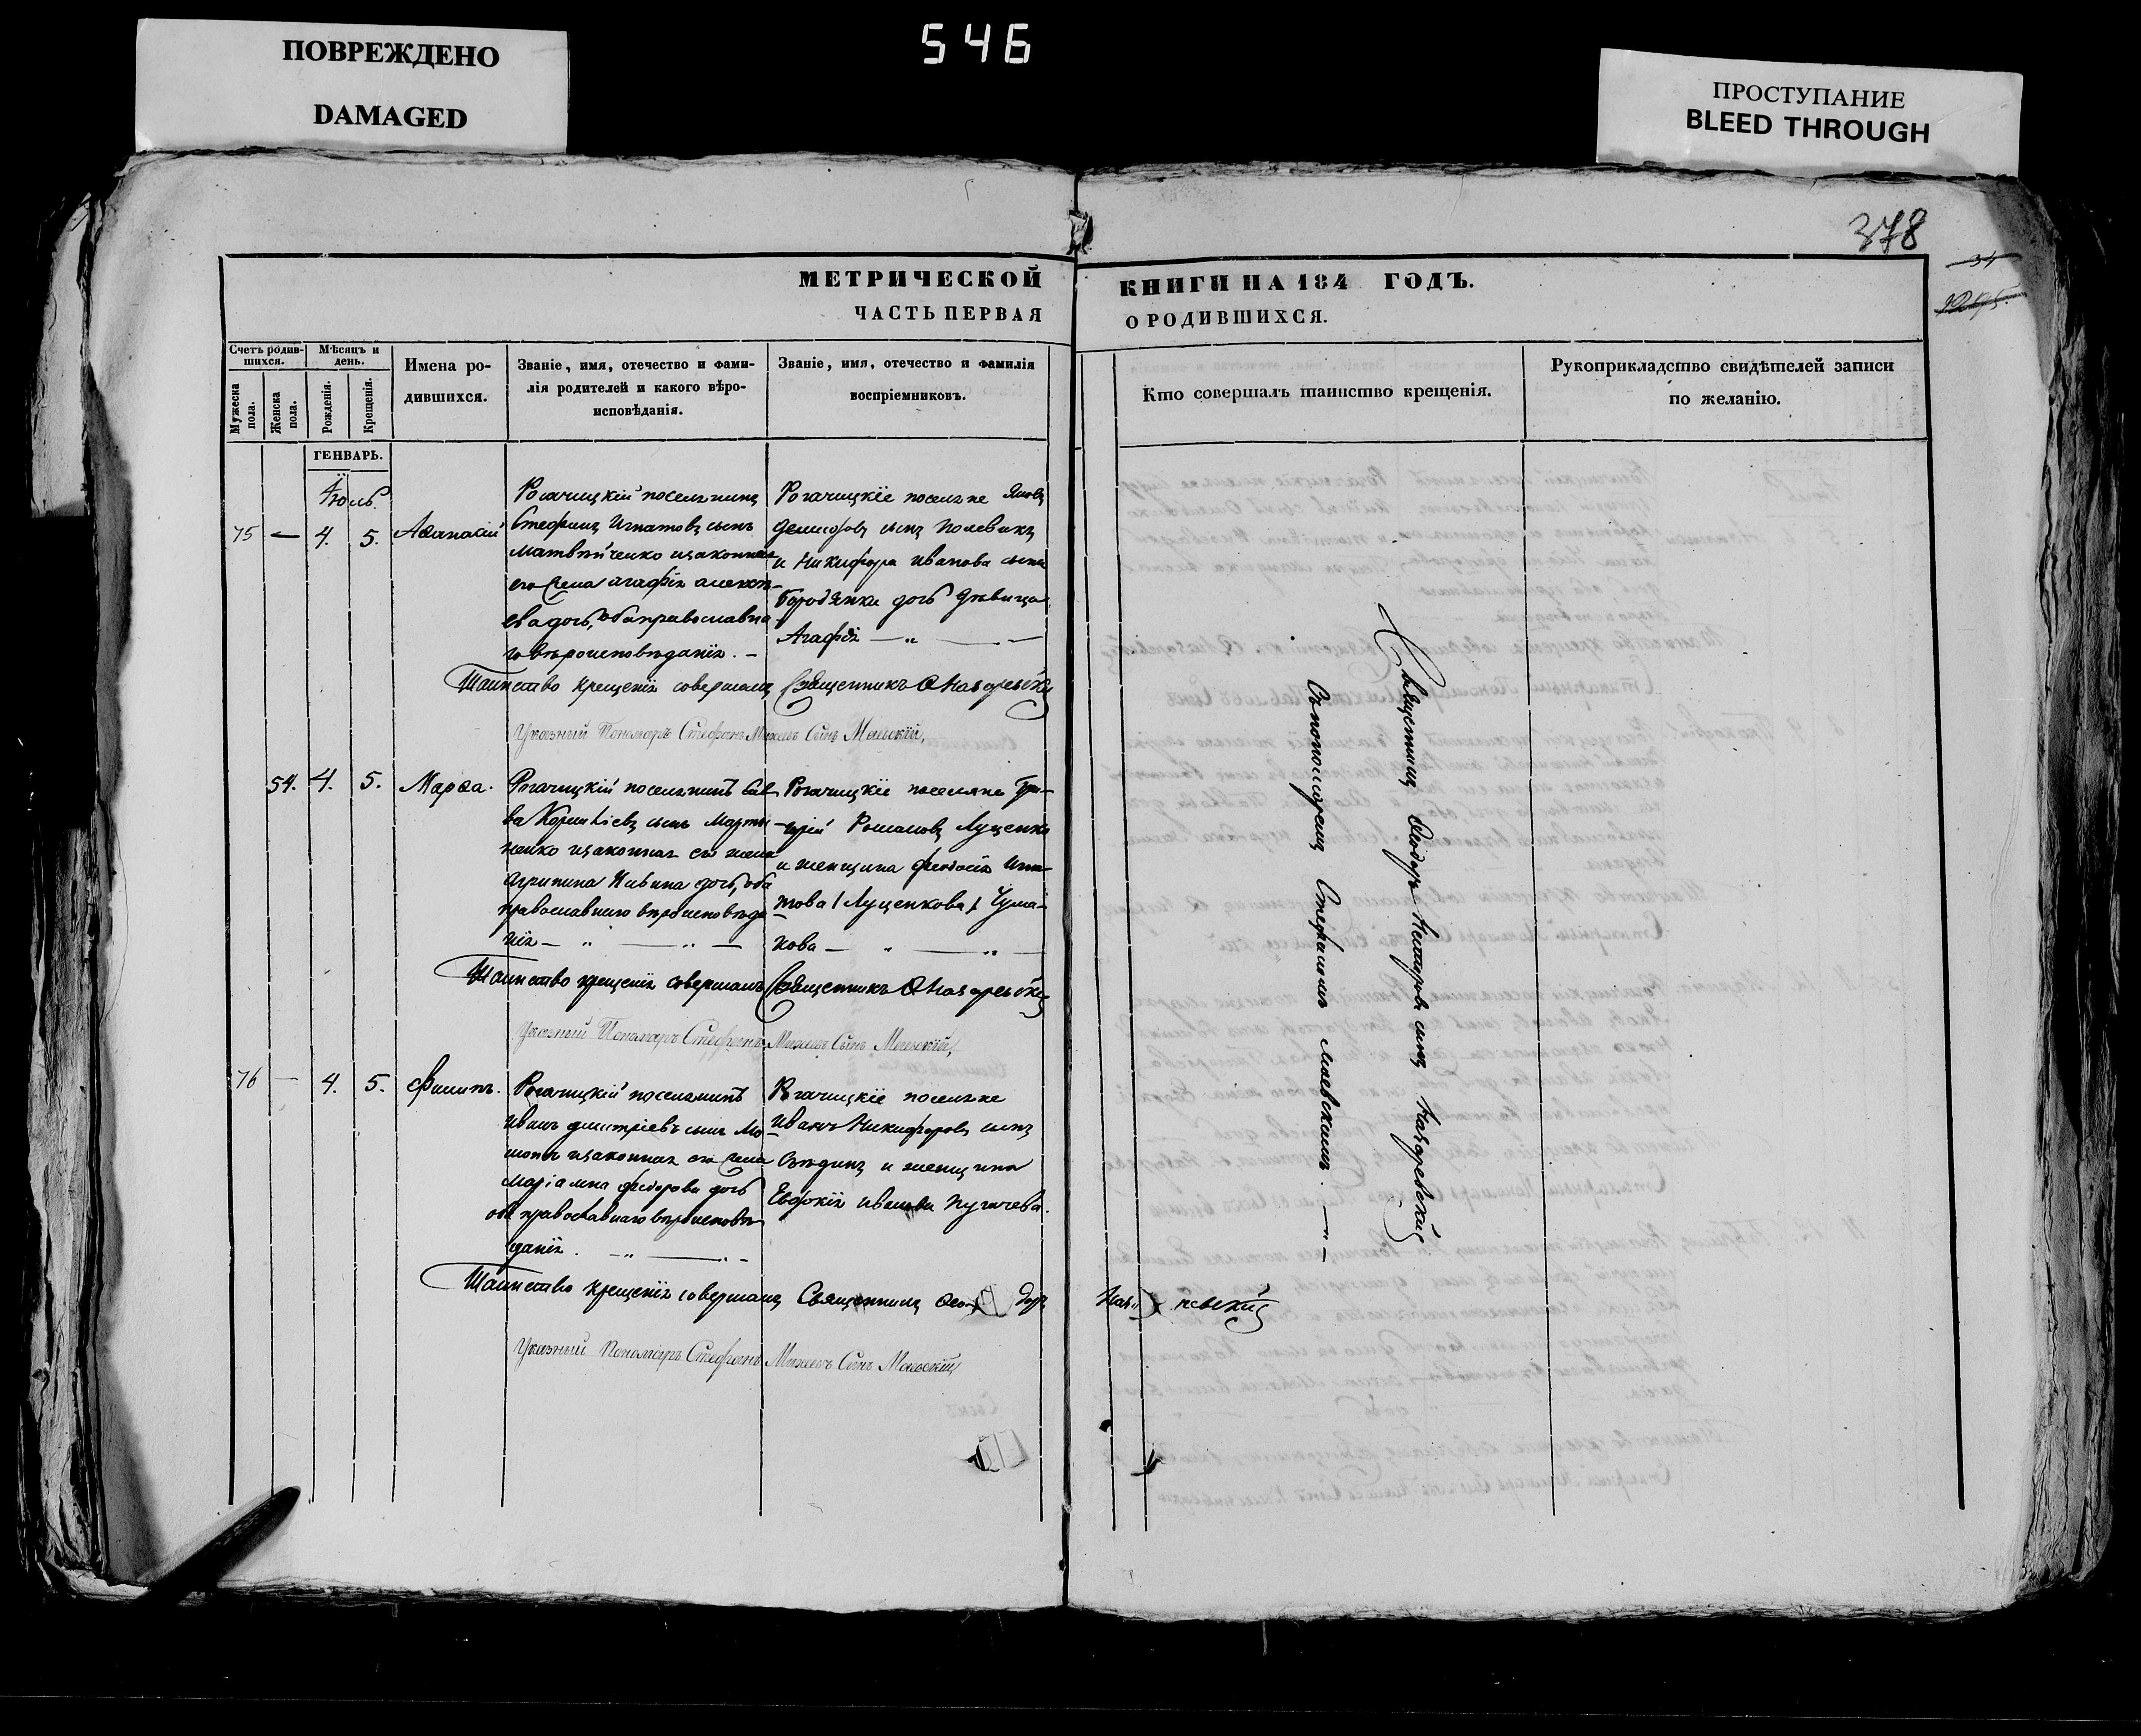 ПОВРЕЖДЕНО
DAMAGED
546
ПРОСТУПАНИЕ
BLEED THROUGH
378
34
МЕТРИЧЕСКОЙ
ЧАСТЬ ПЕРВАЯ
КНИГИ НА 184 ГОДЪ.
О РОДИВШИХСЯ.
Счетъ родив-
шихся.
Мужеска
пола.
Женска
пола.
Мѣсяцъ и
день.
Рожденія.
Крещенія.
Имена ро-
дившихся.
Званіе, имя, отечество и фами-
лія родителей и какого вѣро-
исповѣданія.
Званіе, имя, отечество и фамилія
воспріемниковъ.
Кто совершалъ таинство крещенія.
Рукоприкладство свидѣтелей записи
по желанію.
ГЕНВАРЬ.
Іюль
75 — 4. 5. Аѳанасій
Рогачицкій поселянинъ
Стефанъ Игнатовъ сынъ
Матвѣйченко изаконная
его жена Агафія Алексѣ-
ева дочь, оба православна-
го вѣроисповѣданія. —
Рогачицкіе поселяне Яковъ
сынъ Полевикъ
и Никифора Иванова сына
Бородянки дочь дѣвица
Агафія — „ —
Таинство крещенія совершалъ Священникъ Ѳ Назаревскій
Указный Пономарь Стефанъ Михеевъ Сынъ Маевскій,
54. 4. 5. Марѳа.
Рогачицкій поселянинъ Сав-
ва Корніевъ сынъ Марты-
ненко изаконная его жена
Агрипина Ивина дочь, оба
православнаго вѣроисповѣда-
нія — „ — „ —
Рогачицкіе поселяне Гри-
горій Романовъ Луценко
и женщина Феодосія Игна-
това / Луценкова / Чума-
кова — „ — „ —
Таинство крещенія совершалъ Священникъ Ѳ Назаревскій
Указный Пономарь Стефанъ Михеевъ Сынъ Маевскій,
76 — 4. 5. Филипъ.
Рогачицкій поселянинъ
Иванъ Дмитріевъ сынъ
изаконная его жена
Маріамна Федорова дочь
оба православнаго вѣроисповѣ
данія. — „ — „ —
Рогачицкіе поселяне
Иванъ Никифоровъ сынъ
и женщина
Евдокія Иванова Пугачева.
Таинство крещенія совершалъ Священникъ Ѳео доръ Наза ревскій
Указный Пономарь Стефанъ Михеевъ Сынъ Маевскій
Священникъ Ѳеодоръ сынъ Назаревскій
Съ пономаремъ Стефаномъ Маевскимъ. — „ —